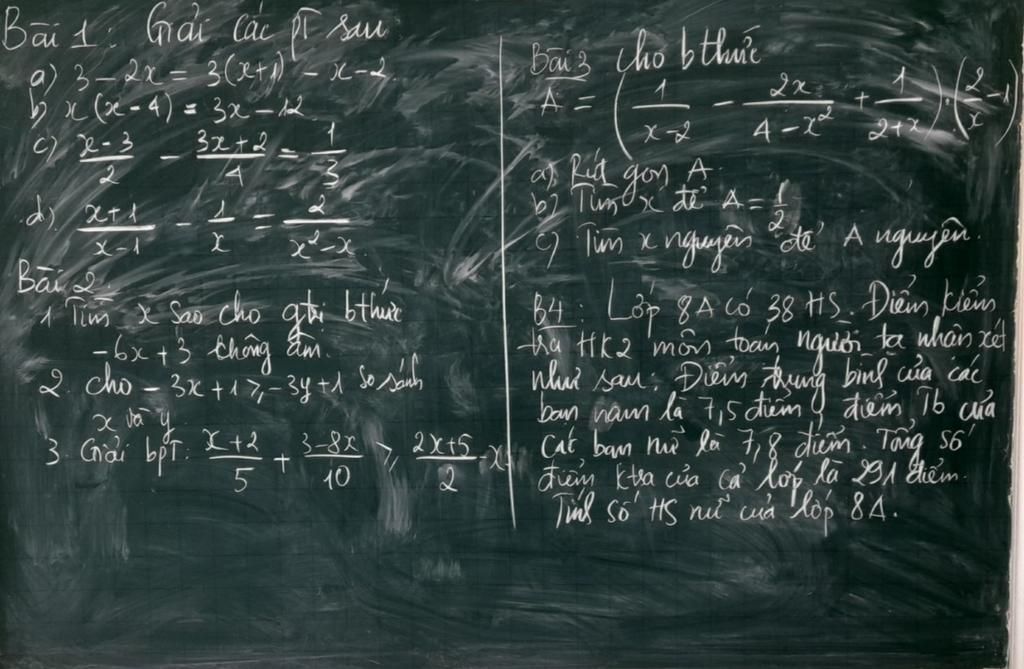 Bài 1: Giải các pT sau
a) 3 - 2x = 3(x+1) - x - 2
b) x(x-4) = 3x - 12
c) (x-3)/2 - (3x+2)/4 = 1/3
d) (x+1)/(x-1) - 1/x = 2/(x²-x)
Bài 2:
1 Tìm x sao cho gtrị bthức
-6x+3 không âm.
2. cho -3x+1 ≥ -3y+1 so sánh
x và y
3. Giải bpT: (x+2)/5 + (3-8x)/10 ≥ (2x+5)/2 - x
Bài 3 Cho bthức
A = (1/(x-2) - 2x/(4-x²) + 1/(2+x)).(2/x - 1)
a) Rút gọn A.
b) Tìm x để A = 1/2
c) Tìm x nguyên để A nguyên.
B4: Lớp 8A có 38 HS. Điểm kiểm
tra HK2 môn toán người ta nhận xét
như sau: Điểm trung bình của các
bạn nam là 7,5 điểm, điểm Tb của
các bạn nữ là 7,8 điểm. Tổng số
điểm ktra của cả lớp là 291 điểm.
Tính số HS nữ của lớp 8A.